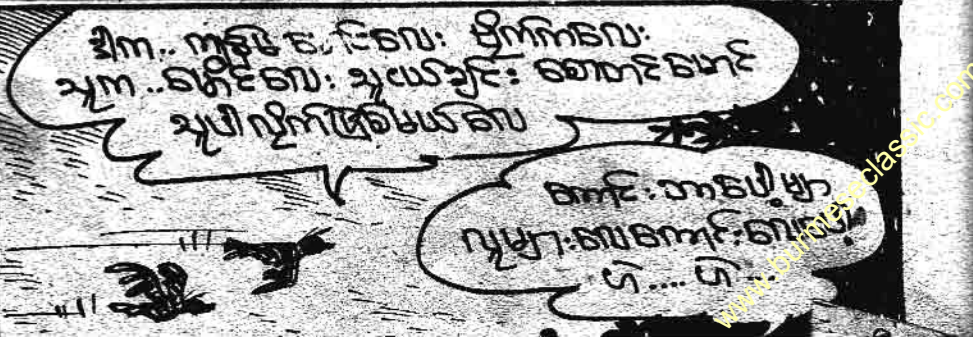 ဒါက.. ကျွန်မ မောင်လေး မိုက်ကလေး
သူက ..မောင်လေး သူငယ်ချင်း အောတင်မောင်
သူပါ လိုက်ခဲ့မယ်လေ
ကောင်းတာပေါ့ဗျာ
လူများလေကောင်းလေပေါ့
ဟဲ .... ဟဲ ...
www.burmeseclassic.com